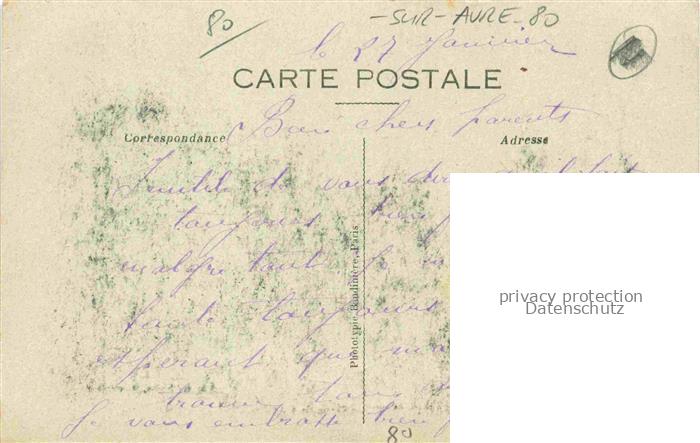 80
-SUR-AVRE-80
le 27 Janvier
CARTE POSTALE
Bien chers parents
Correspondance
Adresse
Inutile de vous dire
toujours bien
malgré tout Je
toujours
espérant que
Je vous embrasse bien
Phototypie Baudinière, Paris
80
privacy protection
Datenschutz